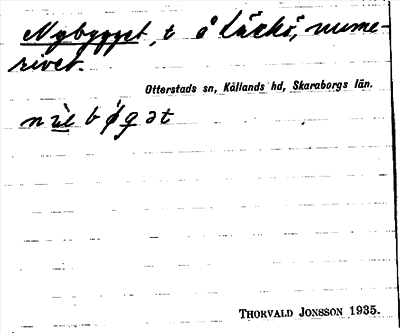 Nybygget, t å Läckö, nume-
rivet.
Otterstads sn, Kållands hd, Skaraborgs län.
THORVALD JONSSON 1935.